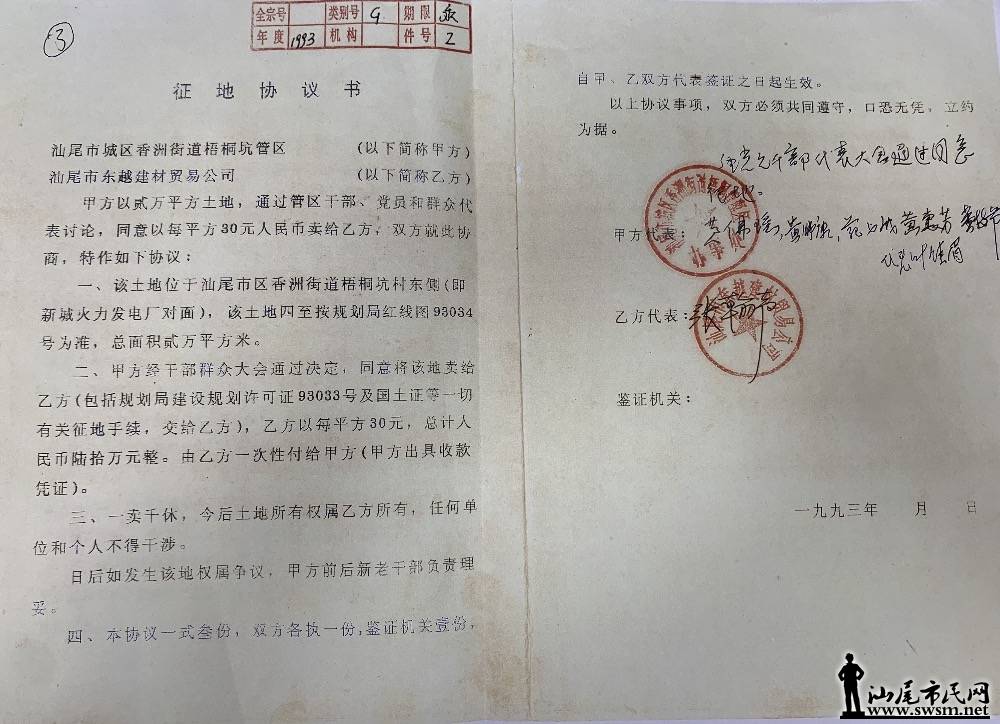 ③
全宗号 类别号 G 期限
年度 1993 机构 件号 2
征地协议书
汕尾市城区香洲街道梧桐坑管区 (以下简称甲方)
汕尾市东越建材贸易公司 (以下简称乙方)
甲方以贰万平方土地，通过管区干部、党员和群众代
表讨论，同意以每平方30元人民币卖给乙方，双方就此协
商，特作如下协议：
一、该土地位于汕尾市区香洲街道梧桐坑村东侧(即
新城火力发电厂对面)，该土地四至按规划局红线图93034
号为准，总面积贰万平方米。
二、甲方经干部群众大会通过决定，同意将该地卖给
乙方(包括规划局建设规划许可证93033号及国土证等一切
有关征地手续，交给乙方)，乙方以每平方30元，总计人
民币陆拾万元整。由乙方一次性付给甲方(甲方出具收款
凭证)。
三、一卖千休，今后土地所有权属乙方所有，任何单
位和个人不得干涉。
日后如发生该地权属争议，甲方前后新老干部负责理
妥。
四、本协议一式叁份，双方各执一份,鉴证机关壹份，
自甲、乙双方代表鉴证之日起生效。
以上协议事项，双方必须共同遵守，口恐无凭，立约
为据。
干部代表大会通过同意
甲方代表：
乙方代表：
鉴证机关：
一九九三年 月 日
汕尾市民网
www.swsm.net